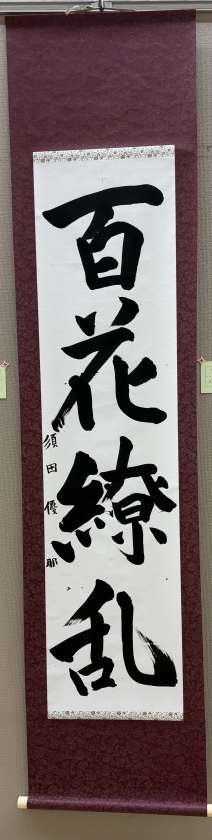 百花繚乱
須田優那